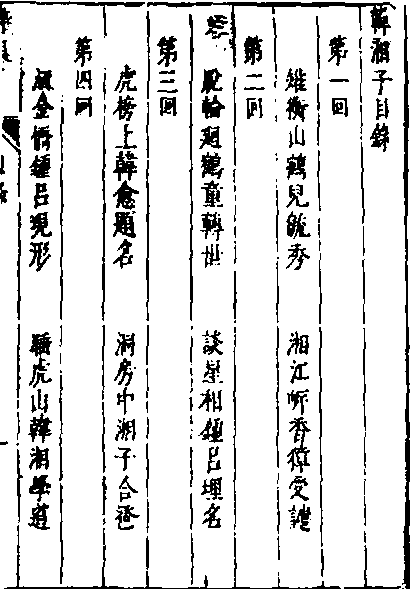 韓湘子目錄
第一回
雉衡山鶴兒毓秀 湘江岸香獐受譴
第二回
脫輪廻鶴童轉世 談星相鍾呂埋名
第三回
虎榜上韓愈題名 洞房中湘子合巹
第四回
金橋鍾呂現形 睡虎山韓湘學道